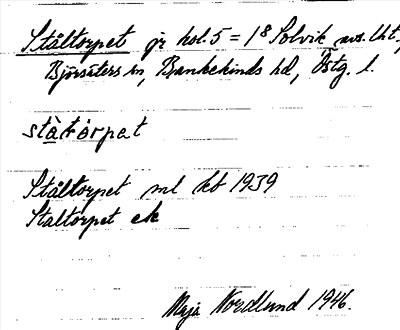 Ståltorpet fr kol. 5 = 1⁸ Solvik avs. lht,
Björsäters sn, Bankekinds hd, Östg. l.
stàtɷrpat
Ståltorpet ml kt 1939
Staltorpet ek
Maja Nordlund 1946.